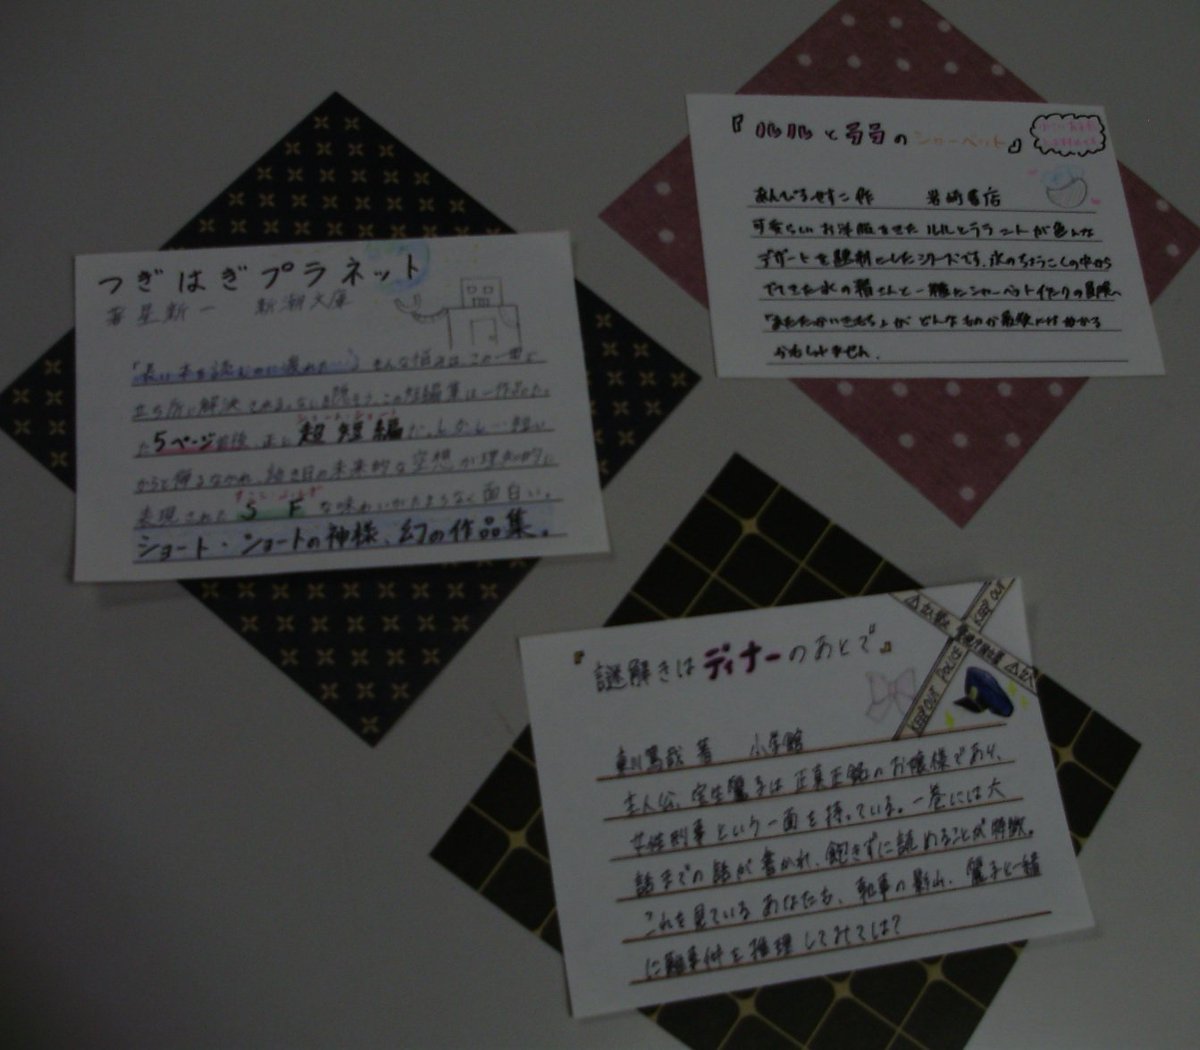 つぎはぎプラネット
著 星新一 新潮文庫
「長い本を読むのに疲れた…」そんな悩みはこの一冊で
立ち所に解決される。なにを隠そう、この短編集は一作品たっ
た5ページ前後、正に超短編だ。しかし…短い
からと侮るなかれ、
表現された SF な味わいがたまらなく面白い。
ショート・ショートの神様、幻の作品集。
『ルルとララのシャーベット』
あんびるやすこ 作 岩崎書店
可愛らしいお洋服をきたルルとララ
デザートを題材にしたシリーズです。
でてきた氷の
「あたたかいきもち」がどんなものか最後には分かる
かもしれません。
『謎解きはディナーのあとで』
KEEP OUT
POLICE
KEEP OUT
東川篤哉 著 小学館
主人公、宝生麗子は正真正銘のお嬢様であり、
女性刑事という一面を持っている。一巻には六
話までの話が書かれ、飽きずに読めることが特徴。
これを見ているあなたも、執事の影山、麗子と一緒
に難事件を推理してみては？